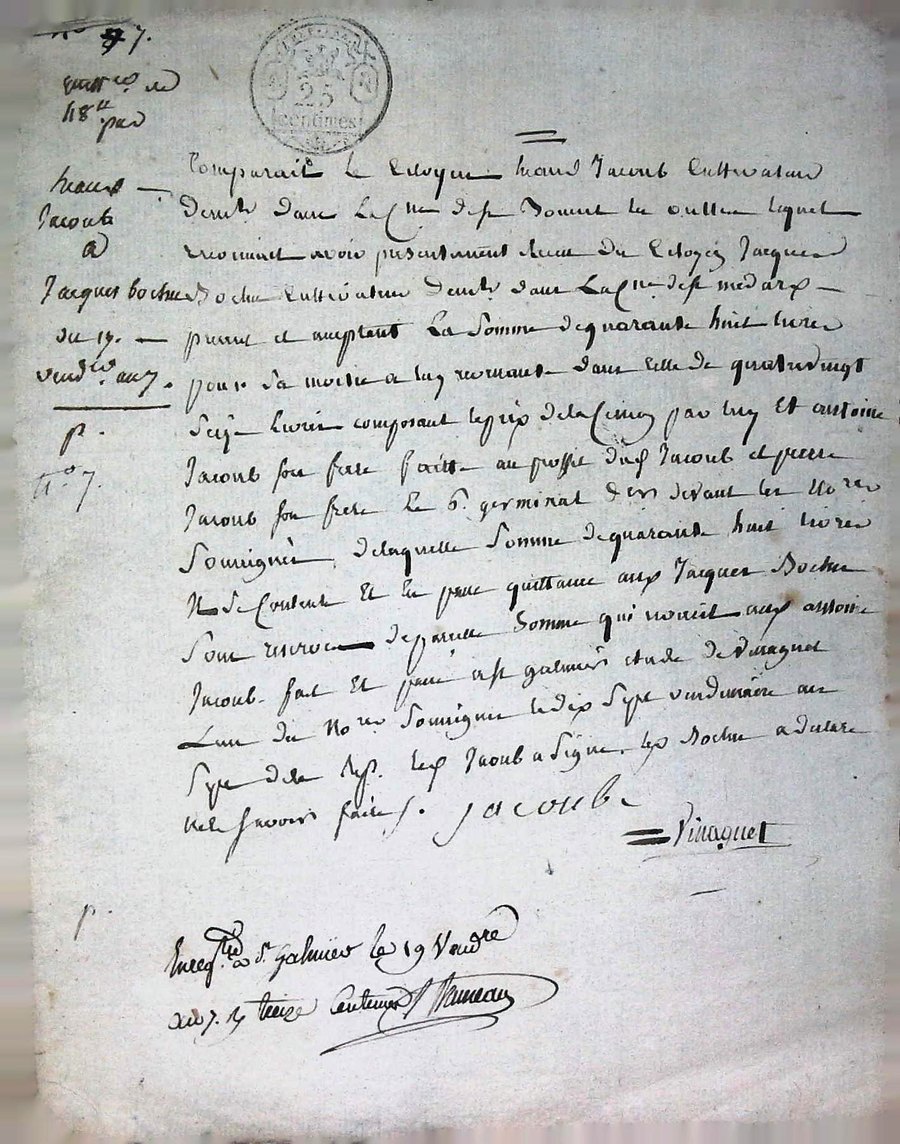 N° 7.
quitt.ce de
48 ᵗᵗ
par
Jacoub
a
Jacques bochu
du 17.
vend.re an 7.
p.
N° 7.
25
centimes
Comparait le Citoyen Jacoub Cultivateur
demt. dans la Cne de st bonnet les oulles lequel
reconnait avoir presentement du Citoyen Jacques
Bochu Cultivateur demt. dans la Cne de st medard
present et acceptant La Somme de quarante huit livres
pour Sa moitié a luy revenante dans Celle de quatrevingt
Seize livres composant le prix de la par luy Et antoine
Jacoub son frere faitte au proffit dud Jacoub et pierre
Jacoub son frere Le 6. germinal dern devant les Nores
Soussignés, de laquelle Somme de quarante huit livres
Il Se Content Et En passe quittance aux Jacques Bochu
Sous reserve de pareille Somme qui revient aux antoine
Jacoub. fait Et passé a st galmier etude de Vinagnet
L'un des Nores Soussignés le dix Sept vendemiaire an
Sept de la Rep. led Jacoub a Signé, led Bochu a déclaré
ne le Savoir faire /.
Jacoub
Vinagnet
p.
Enregtré a St. Galmier le 19 Vendre
an 7. R treize Centimes